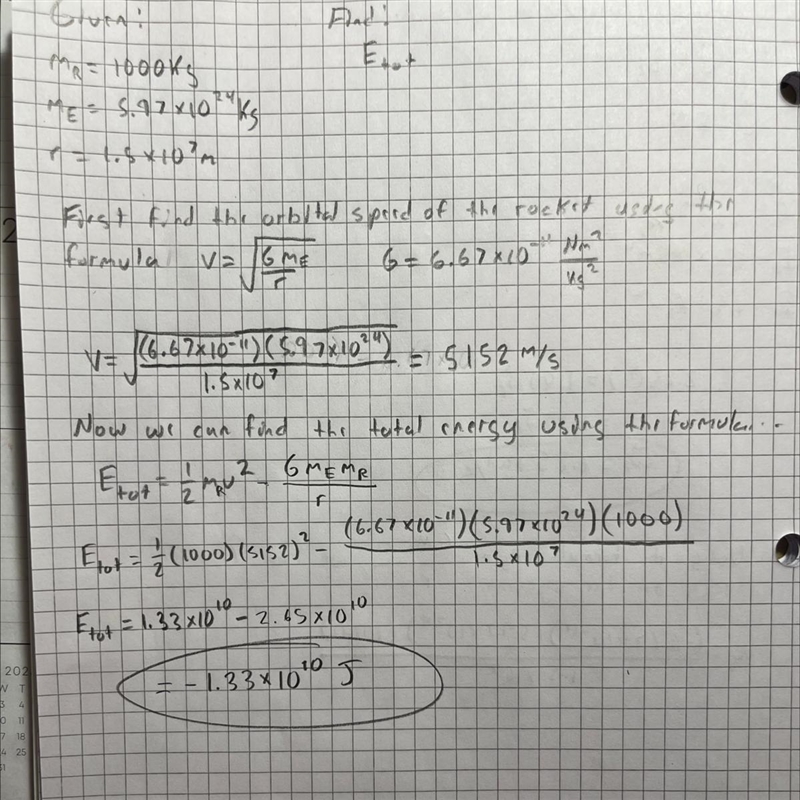 Given: Find:
E_tot
m_R = 1000Kg
m_E = 5.97×10^24 Kg
r = 1.5×10^7 m
First find the orbital speed of the rocket using the
formula V = √(G M_E / r) G = 6.67×10^-11 Nm^2/kg^2
V = √((6.67×10^-11)(5.97×10^24) / 1.5×10^7) = 5152 m/s
Now we can find the total energy using the formula...
E_tot = 1/2 m_R v^2 - G M_E M_R / r
E_tot = 1/2 (1000)(5152)^2 - (6.67×10^-11)(5.97×10^24)(1000) / 1.5×10^7
E_tot = 1.33×10^10 - 2.65×10^10
= -1.33×10^10 J
2
202
W T
3 4
0 11
7 18
4 25
31